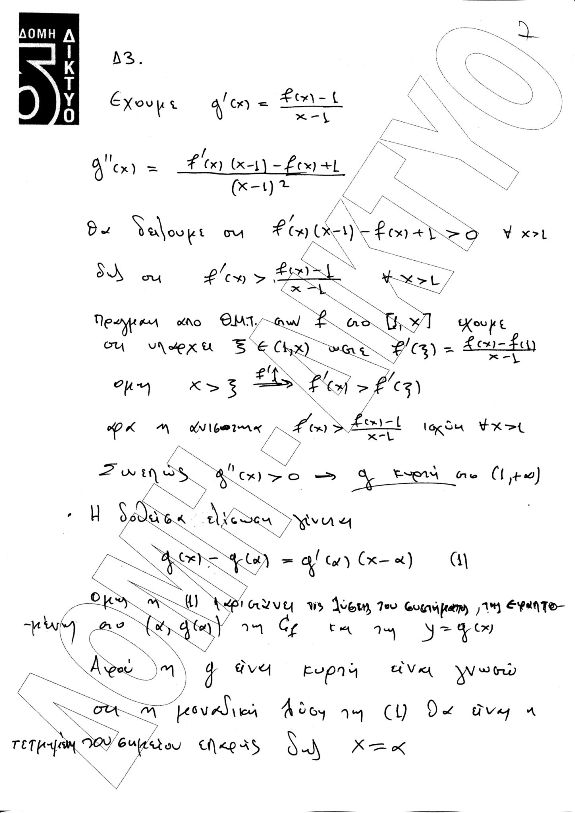 7
ΔΟΜΗ
ΔΙΚΤΥΟ
Δ3.
Έχουμε g'(x) = (f(x)-1)/(x-1)
g''(x) = (f'(x)(x-1)-f(x)+1)/(x-1)²
Θα δείξουμε οτι f'(x)(x-1)-f(x)+1>0 ∀x>1
δηλ οτι f'(x) > (f(x)-1)/(x-1) ∀x>1
πραγματι απο Θ.Μ.Τ. στην f στο [1,x] εχουμε
οτι υπαρχει ξ∈(1,x) ωστε f'(ξ) = (f(x)-f(1))/(x-1)
ομως x>ξ f'↑⟹ f'(x)>f'(ξ)
αρα η ανισοτητα f'(x) > (f(x)-1)/(x-1) ισχύει ∀x>1
Συνεπώς g''(x)>0 → g κυρτή στο (1,+∞)
· Η δοθείσα εξίσωση γίνεται
g(x)-g(α) = g'(α)(x-α) (1)
Ομως η (1) παριστάνει τις λύσεις του συστήματος, της εφαπτο-
-μένης στο (α, g(α)) της Cf και της y=g(x)
Αφού η g είναι κυρτή είναι γνωστό
οτι η μοναδική λύση της (1) θα είναι η
τετμημένη του σημείου επαφής δηλ x=α
ΔΟΜΗ - ΔΙΚΤΥΟ